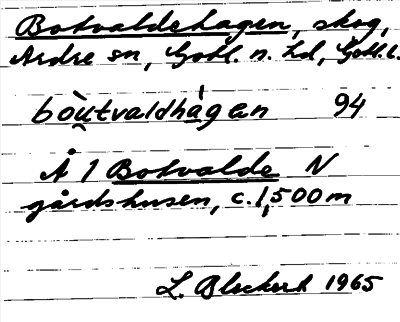 Botvaldehagen, skog,
Ardre sn, Gotl. n. hd, Gotl. l.
bòu̯tvaldhá̱gen 94
Å 1 Botvalde N
gårdshusen, c. 1,500 m
L. 1965